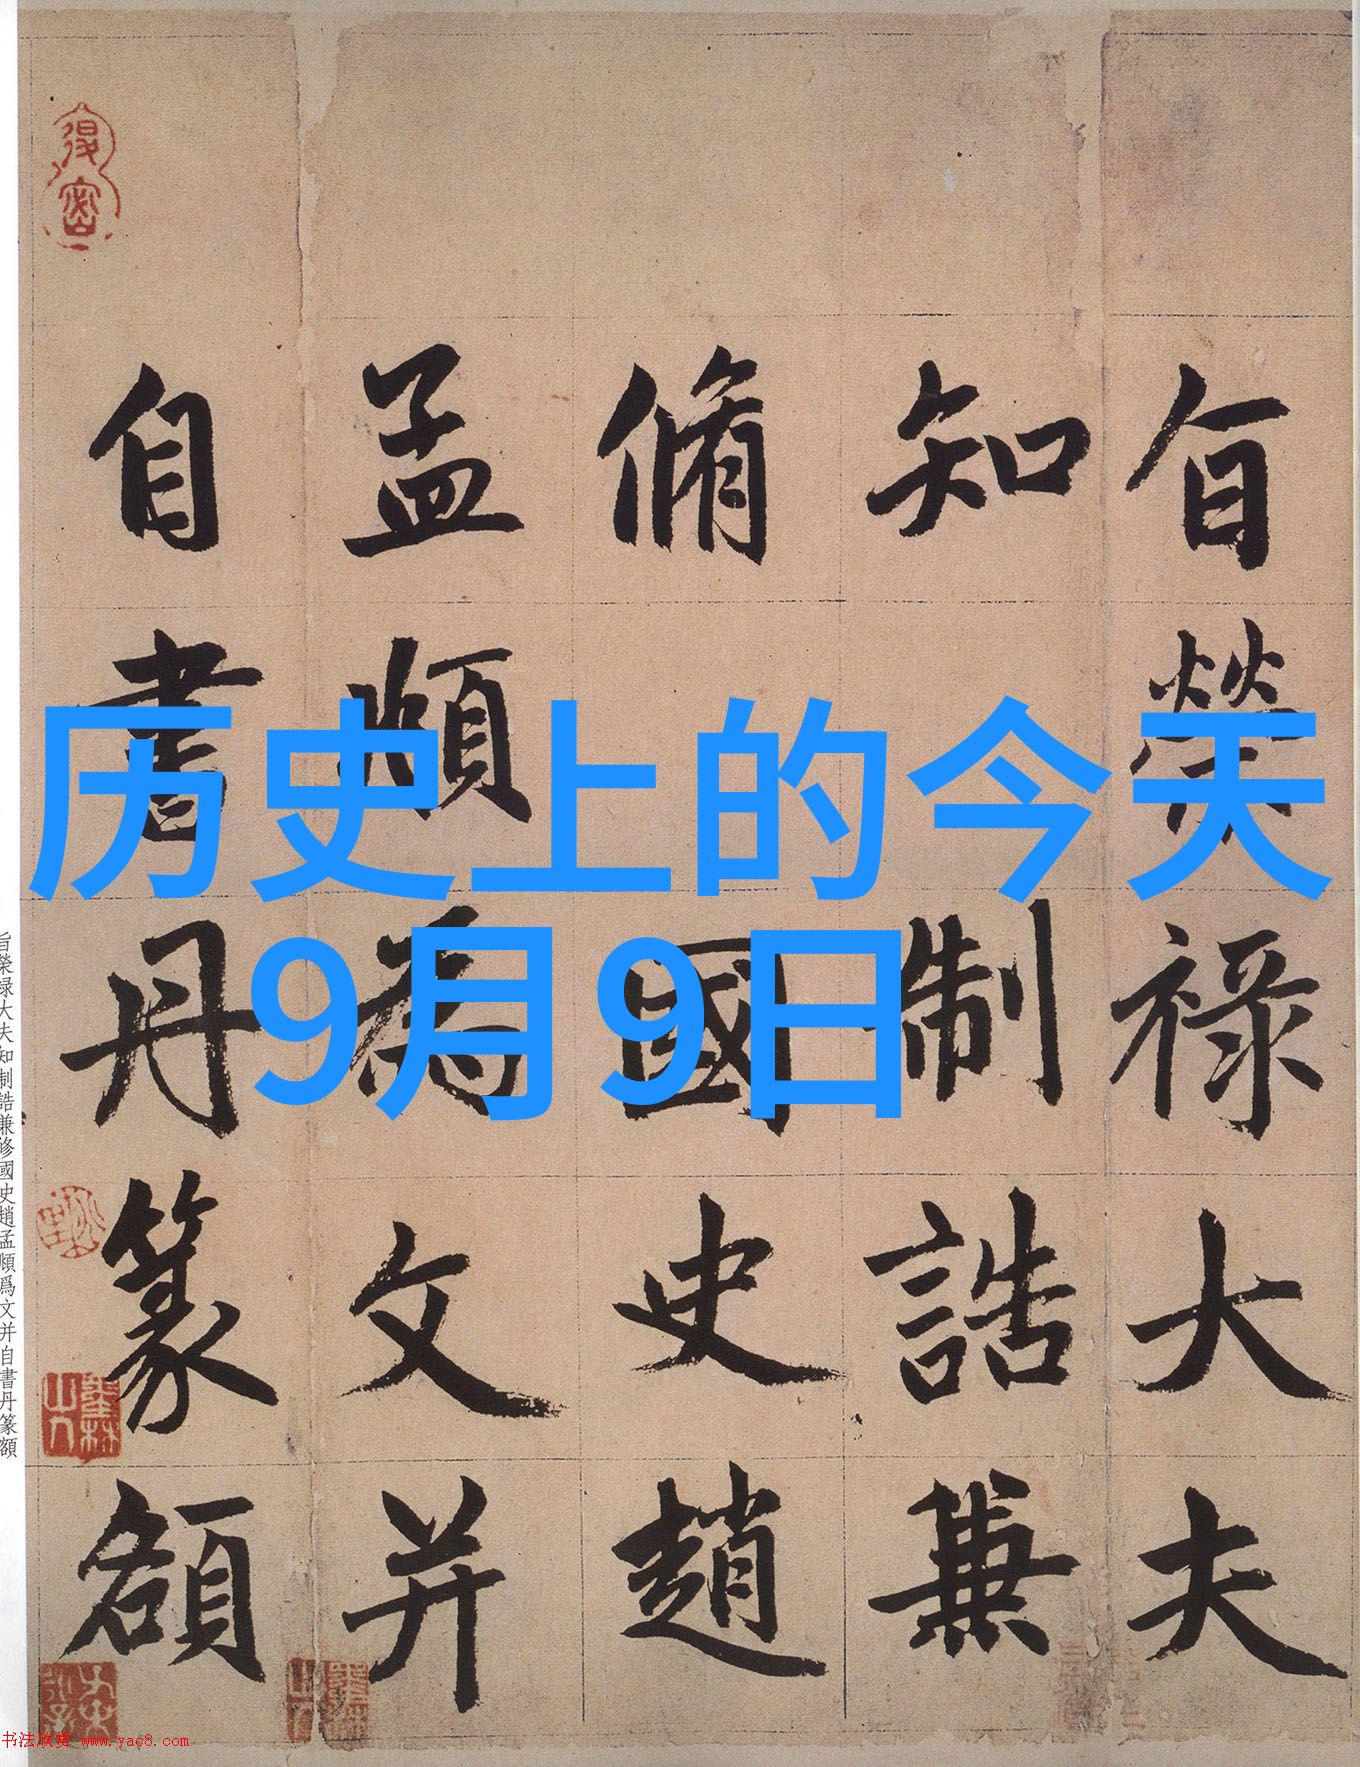 历史上的今天
9月9日
旨榮祿大夫
知制誥兼
脩國史趙
孟頫為文并
自書丹篆額
旨榮禄大夫知制誥兼修國史趙孟頫爲文并自書丹篆額
书法欣赏 www.yac8.com